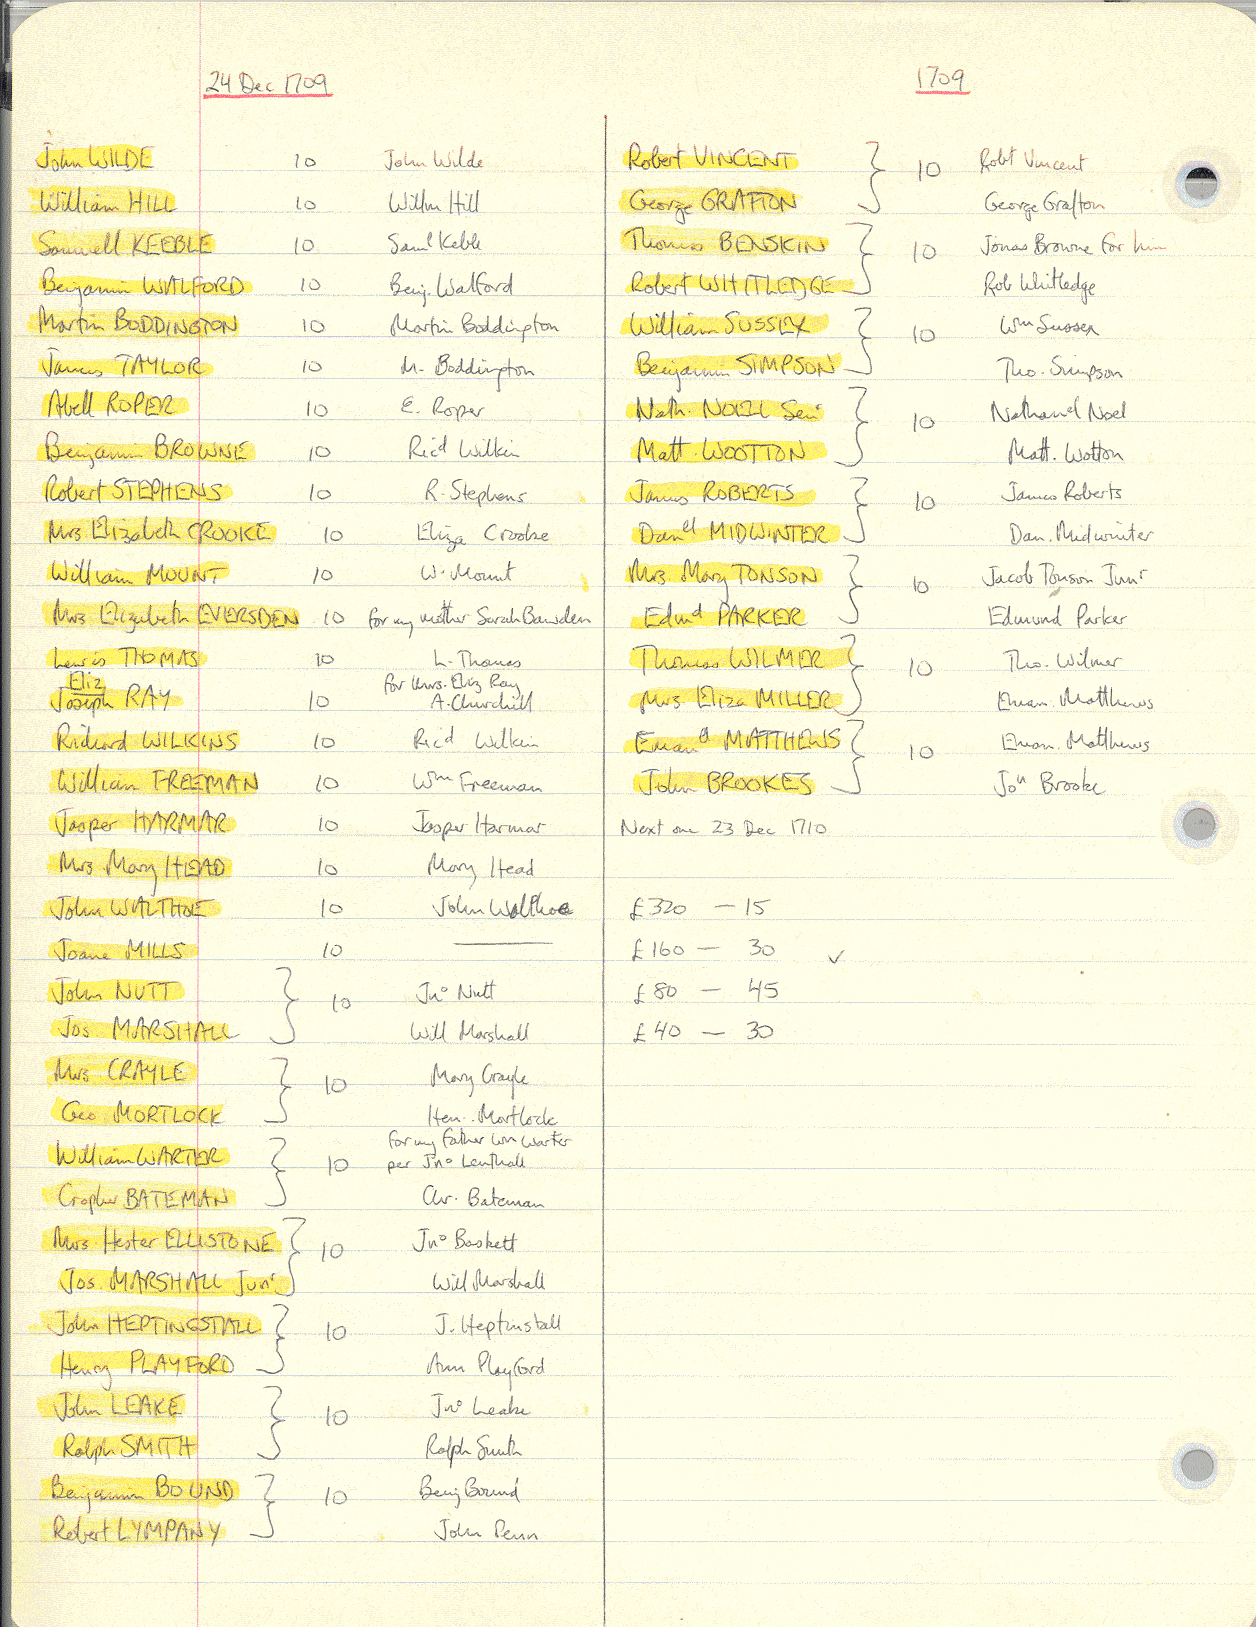 24 Dec 1709
John WILDE 10 John Wilde
William HILL 10 Willm Hill
Samuell KEEBLE 10 Saml Keble
Benjamin WALFORD 10 Benj. Walford
Martin BODDINGTON 10 Martin Boddington
James TAYLOR 10 M. Boddington
Abell ROPER 10 E. Roper
Benjamin BROWNE 10 Ricd Wilkin
Robert STEPHENS 10 R. Stephens
Mrs Elizabeth CROOKE 10 Eliza Crooke
William MOUNT 10 W. Mount
Mrs Elizabeth EVERSDEN 10 for my mother Sarah Bawden
Lewis THOMAS 10 L. Thomas
Eliz for Mrs. Eliz Ray
Joseph RAY 10 A. Churchill
Richard WILKINS 10 Ricd Wilkin
William FREEMAN 10 Wm Freeman
Jasper HARMAR 10 Jasper Harmar
Mrs Mary HEAD 10 Mary Head
John WALTHOE 10 John Walthoe
Joane MILLS 10 ———
John NUTT } 10 Jno Nutt
Jos MARSHALL Will Marshall
Mrs CRAYLE } 10 Mary Crayle
Geo MORTLOCK Hen. Mortlock
for my father Wm Warter
William WARTER } 10 per Jno Lenthall
Cropher BATEMAN Chr. Bateman
Mrs Hester ELLISTONE } 10 Jno Baskett
Jos. MARSHALL Junr Will Marshall
John HEPTINGSTALL } 10 J. Heptinstall
Henry PLAYFORD Ann Playford
John LEAKE } 10 Jno Leake
Ralph SMITH Ralph Smith
Benjamin BOUND } 10 Benj Bound
Robert LYMPANY John Penn
1709
Robert VINCENT } 10 Robt Vincent
George GRAFTON George Grafton
Thomas BENSKIN } 10 Jonas Browne for him
Robert WHITLEDGE Rob Whitledge
William SUSSEX } 10 Wm Sussex
Benjamin SIMPSON Tho. Simpson
Nath. NOELL Senr } 10 Nathanel Noel
Matt. WOOTTON Matt. Wotton
James ROBERTS } 10 James Roberts
Danel MIDWINTER Dan. Midwinter
Mrs. Mary TONSON } 10 Jacob Tonson Junr
Edmd PARKER Edmund Parker
Thomas WILMER } 10 Tho. Wilmer
Mrs. Eliza MILLER Eman. Matthews
Emanel MATTHEWS } 10 Eman. Matthews
John BROOKES Jon Brooke
Next one 23 Dec 1710
£320 — 15
£160 — 30 ✓
£80 — 45
£40 — 30